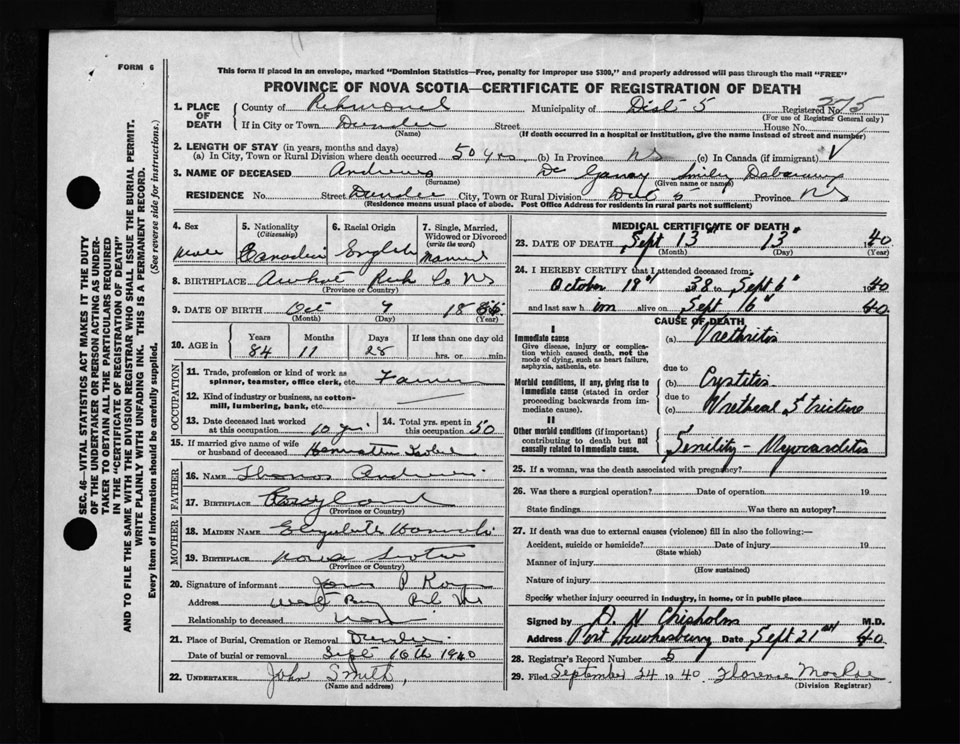 FORM 6
This form if placed in an envelope, marked "Dominion Statistics—Free, penalty for improper use $300," and properly addressed will pass through the mail "FREE"
PROVINCE OF NOVA SCOTIA—CERTIFICATE OF REGISTRATION OF DEATH
1. PLACE OF DEATH County of Richmond Municipality of Dist 5 Registered No.
(For use of Registrar General only)
If in City or Town Dundee Street House No.
(Name) (If death occurred in a hospital or institution, give the name instead of street and number)
2. LENGTH OF STAY (in years, months and days)
(a) In City, Town or Rural Division where death occurred 50 yrs (b) In Province NS (c) In Canada (if immigrant)
3. NAME OF DECEASED Andrews De Smiley
(Surname) (Given name or names)
RESIDENCE No. Street Dundee City, Town or Rural Division Dist 5 Province NS
(Residence means usual place of abode. Post Office Address for residents in rural parts not sufficient)
4. Sex Male
5. Nationality (Citizenship) Canadian
6. Racial Origin English
7. Single, Married, Widowed or Divorced (write the word) Married
8. BIRTHPLACE Rich Co NS
(Province or County)
9. DATE OF BIRTH Oct 9 18
(Month) (Day) (Year)
10. AGE in Years Months Days If less than one day old
84 11 28 hrs. or min.
OCCUPATION
11. Trade, profession or kind of work as spinner, teamster, office clerk, etc. Farmer
12. Kind of industry or business, as cotton-mill, lumbering, bank, etc.
13. Date deceased last worked at this occupation 10 yrs. 14. Total yrs. spent in this occupation 50
15. If married give name of wife or husband of deceased
FATHER
16. NAME Thomas Andrews
17. BIRTHPLACE England
(Province or Country)
MOTHER
18. MAIDEN NAME
19. BIRTHPLACE Nova Scotia
(Province or Country)
20. Signature of informant P
Address West Bay
Relationship to deceased
21. Place of Burial, Cremation or Removal Dundee
Date of burial or removal Sept 16th 1940
22. UNDERTAKER John Smith,
(Name and address)
MEDICAL CERTIFICATE OF DEATH
23. DATE OF DEATH Sept 13" 13" 1940
(Month) (Day) (Year)
24. I HEREBY CERTIFY that I attended deceased from:
October 18" 38 to Sept 6" 1940
and last saw him alive on Sept 16" 40
CAUSE OF DEATH
I
Immediate cause (a) Urethritis
Give disease, injury or complication which caused death, not the mode of dying, such as heart failure, asphyxia, asthenia, etc.
due to
Morbid conditions, if any, giving rise to immediate cause (stated in order proceeding backwards from immediate cause).
(b) Cystitis
due to
(c) Urethral Stricture
II
Other morbid conditions (if important) contributing to death but not causally related to immediate cause.
Senility — Myocarditis
25. If a woman, was the death associated with pregnancy?
26. Was there a surgical operation? Date of operation 19
State findings Was there an autopsy?
27. If death was due to external causes (violence) fill in also the following:—
Accident, suicide or homicide? Date of injury 19
(State which)
Manner of injury
(How sustained)
Nature of injury
Specify whether injury occurred in industry, in home, or in public place
Signed by D. N Chisholm M.D.
Address Port Hawkesbury Date Sept 21st 40
28. Registrar's Record Number 5
29. Filed September 24 1940. Florence
(Division Registrar)
SEC. 46—VITAL STATISTICS ACT MAKES IT THE DUTY
OF THE UNDERTAKER OR PERSON ACTING AS UNDER-
TAKER TO OBTAIN ALL THE PARTICULARS REQUIRED
IN THE "CERTIFICATE OF REGISTRATION OF DEATH"
AND TO FILE THE SAME WITH THE DIVISION REGISTRAR WHO SHALL ISSUE THE BURIAL PERMIT.
WRITE PLAINLY WITH UNFADING INK. THIS IS A PERMANENT RECORD.
Every item of information should be carefully supplied. (See reverse side for instructions.)